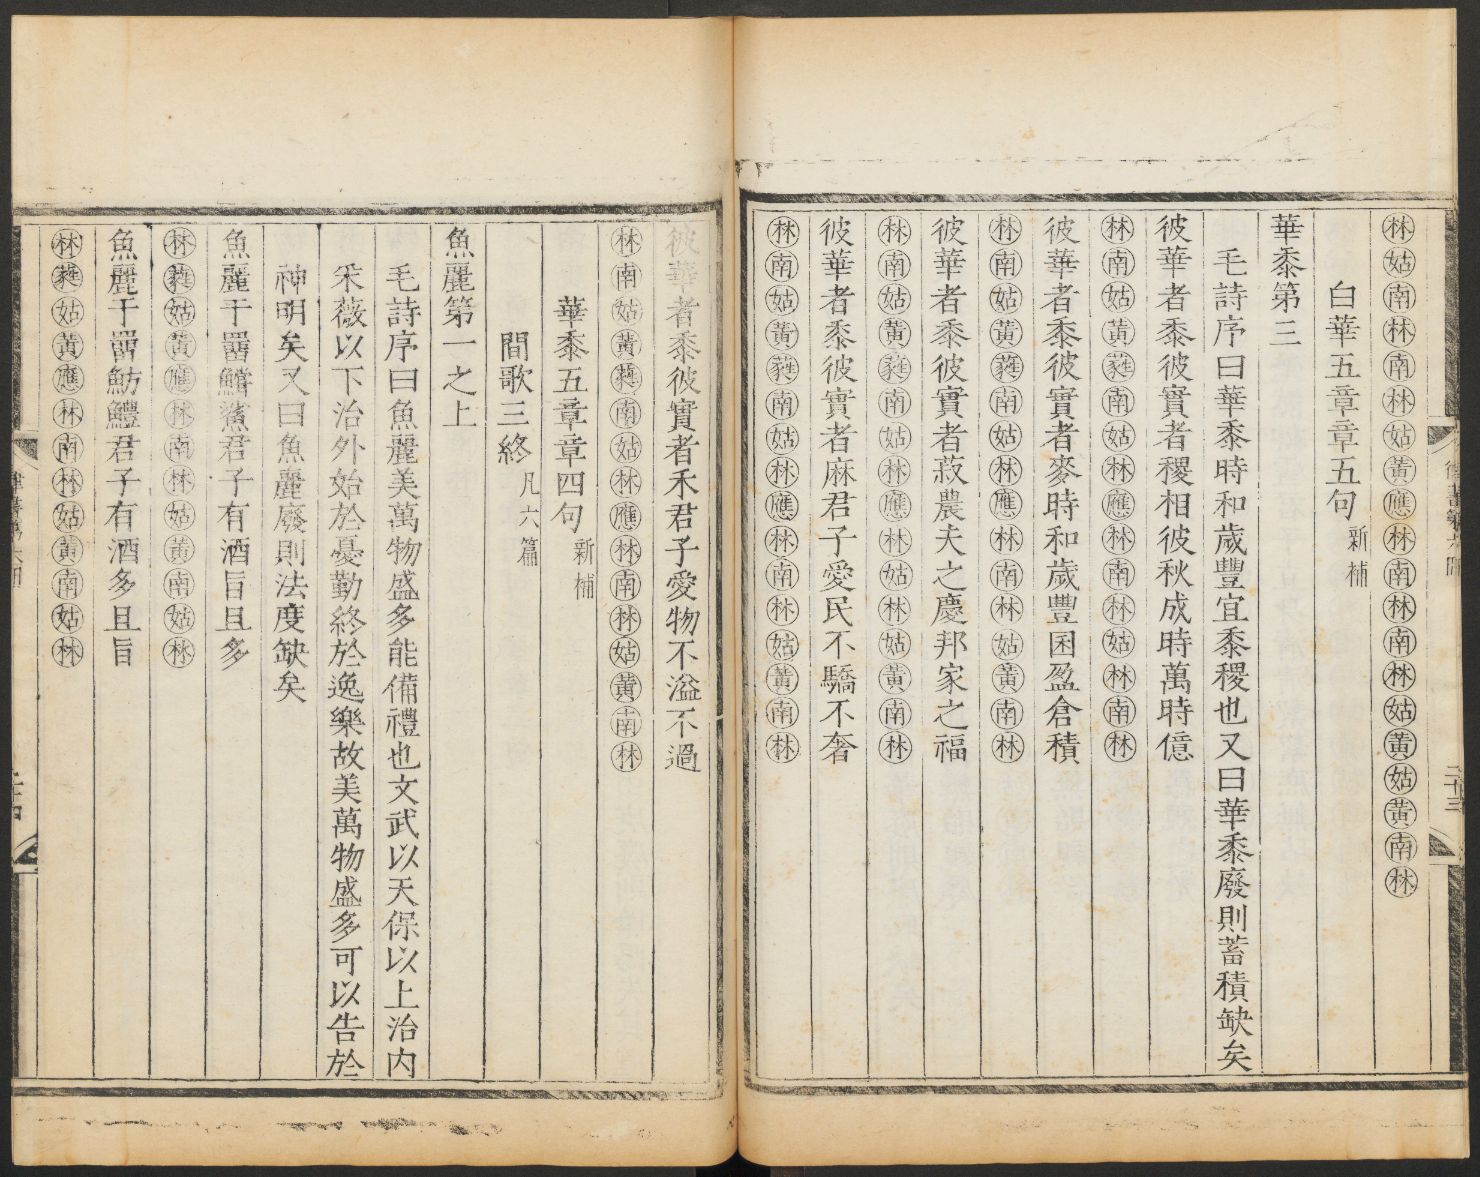 林姑南林南林姑黃應林南林南林姑黃姑黃南林
白華五章章五句 新補
華黍第三
毛詩序曰華黍時和歲豐宜黍稷也又曰華黍廢則蓄積缺矣
彼華者黍彼實者稷相彼秋成時萬時億
林南姑黃蕤南姑林應林南林姑林南林
彼華者黍彼實者麥時和歲豐囷盈倉積
林南姑黃蕤南姑林應林南林姑黃南林
彼華者黍彼實者菽農夫之慶邦家之福
林南姑黃蕤南姑林應林姑林姑黃南林
彼華者黍彼實者麻君子愛民不驕不奢
林南姑黃蕤南姑林應林南林姑黃南林
彼華者黍彼實者禾君子愛物不溢不過
林南姑黃蕤南姑林應林南林姑黃南林
華黍五章章四句 新補
間歌三終 凡六篇
魚麗第一之上
毛詩序曰魚麗美萬物盛多能備禮也文武以天保以上治內
采薇以下治外始於憂勤終於逸樂故美萬物盛多可以告於
神明矣又曰魚麗廢則法度缺矣
魚麗于罶鱨鯊君子有酒旨且多
林蕤姑黃應林南林姑黃南姑林
魚麗于罶魴鱧君子有酒多且旨
林蕤姑黃應林南林姑黃南姑林